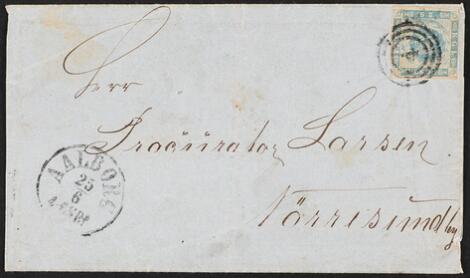 Herr
Procurator Larsen
Nörresundby
AALBORG
25
6